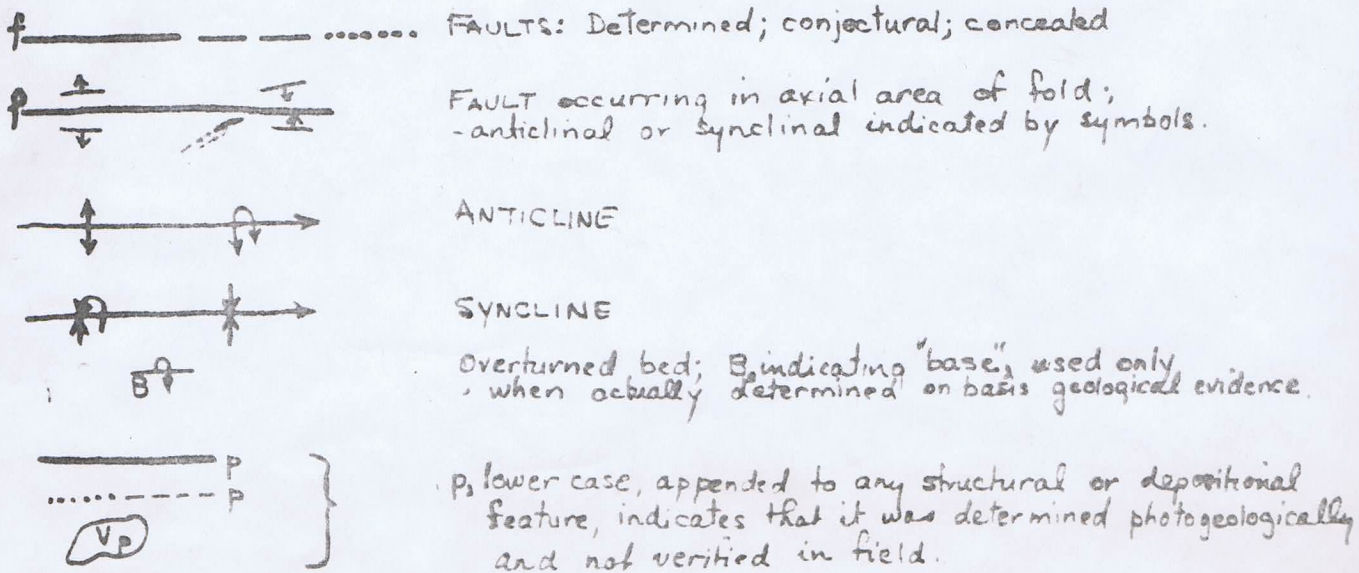 f FAULTS: Determined; conjectural; concealed
f FAULT occurring in axial area of fold;
-anticlinal or synclinal indicated by symbols.
ANTICLINE
SYNCLINE
B Overturned bed; B, indicating "base", used only
when actually determined on basis geological evidence.
p
p
Vp
p, lower case, appended to any structural or depositional
feature, indicates that it was determined photogeologically
and not verified in field.